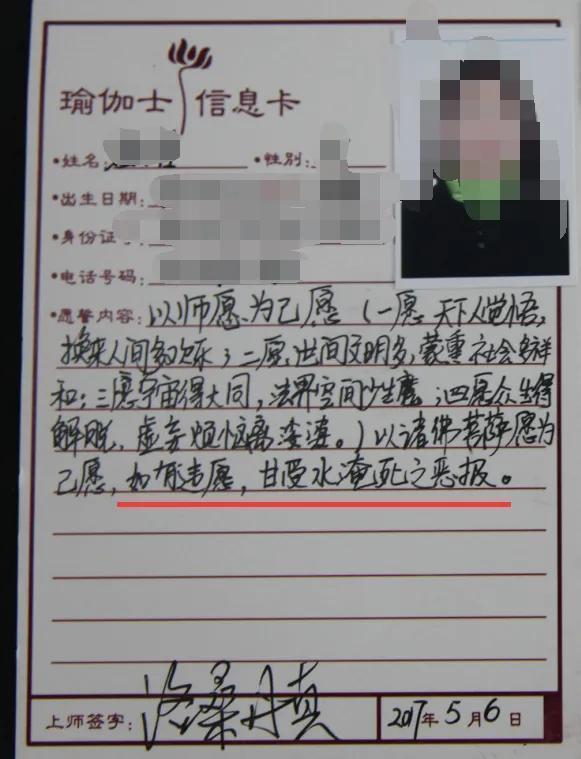 瑜伽士 信息卡
•姓名: •性别:
•出生日期:
•身份证号:
•电话号码:
•愿誓内容: 以师愿为己愿（一愿天下人觉悟,
换来人间多欢乐；二愿世间文明多,蒙熏社会多祥
和；三愿宇宙得大同,法界空间少生魔；四愿众生得
解脱,虚妄烦恼离娑婆。）以诸佛菩萨愿为
己愿,如有违愿,甘受水淹死之恶报。
上师签字: 洛桑丹真 2017年5月6日